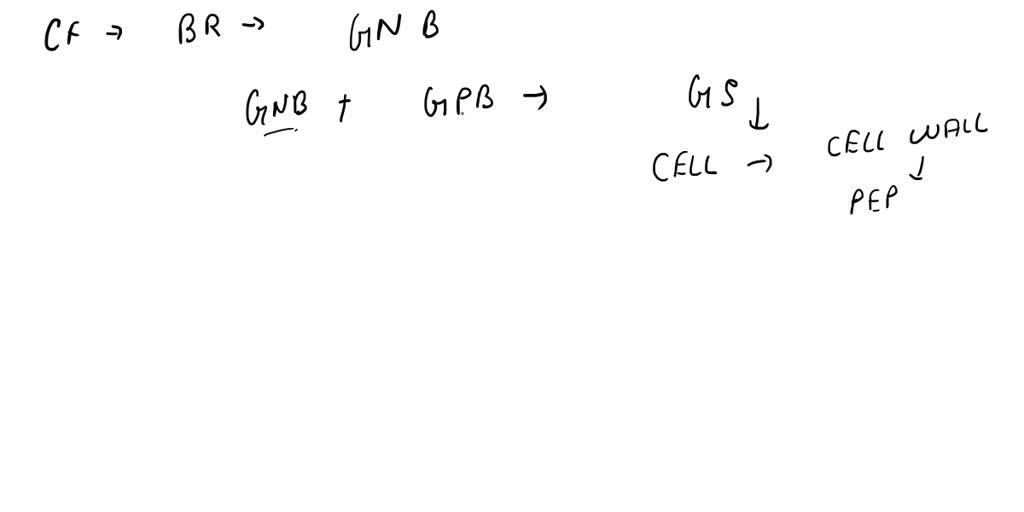 CF → BR → GNB
GNB + GPB → GS ↓
CELL → CELL WALL ↓
PEP